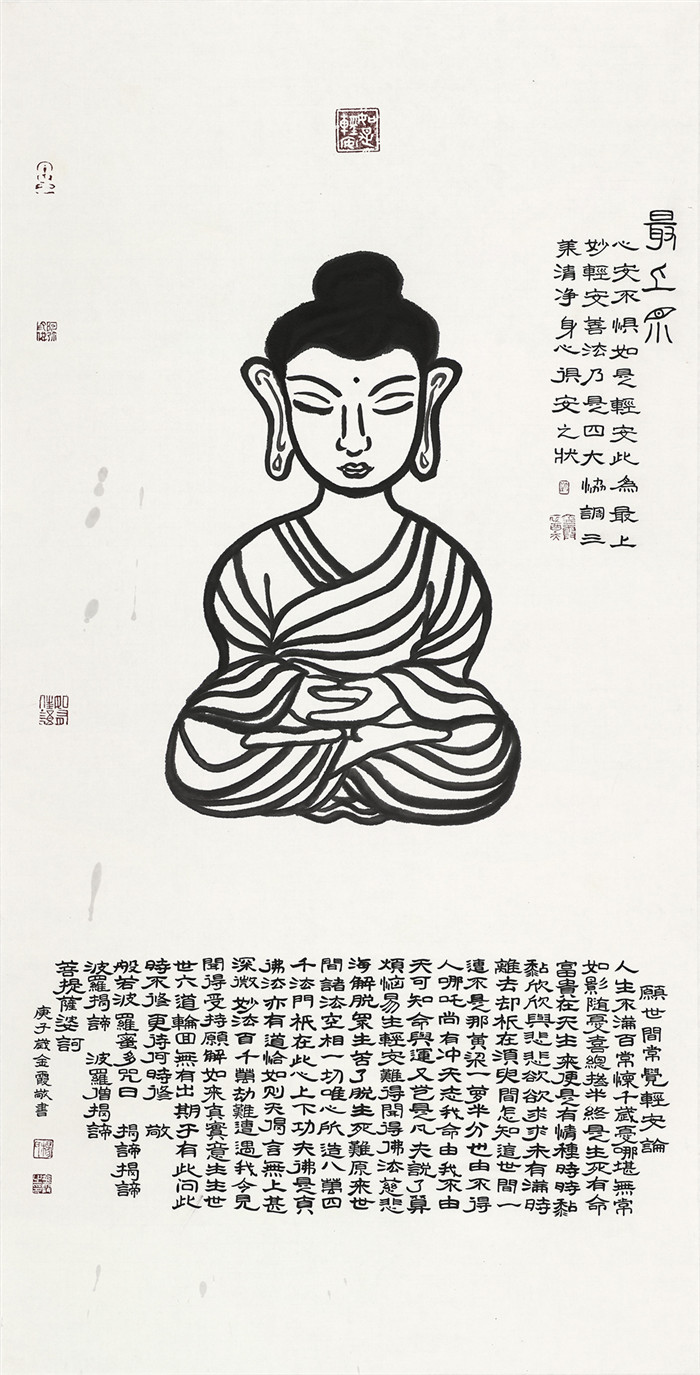 如是輕安
最上眾
心安不惧如是輕安此為最上
妙輕安善法乃是四大協調三
業清净身心俱安之狀
願世間常覺輕安論
人生不滿百常懷千歲憂哪堪無常
如影随憂喜總摻半終是生死有命
富貴在天生来便是有情種時時黏
黏欣欣與悲悲欲欲求求未有滿時
離去却祇在須臾間怎知這世間一
遭不是那黄粱一夢半分也由不得
人哪吒尚有冲天志我命由我不由
天可知命與運又豈是凡夫説了算
煩惱易生輕安難得聞得佛法慈悲
海解脱眾生苦了脱生死難原来世
間諸法空相一切唯心所造八萬四
千法門祇在此心上下功夫佛是真
佛法亦有道恰如则天偈言無上甚
深微妙法百千萬劫難遭遇我今見
聞得受持願解如来真實意生生世
世六道輪回無有出期于有此問此
時不修更待何時修 敬
般若波羅蜜多咒曰 揭諦揭諦
波羅揭諦 波羅僧揭諦
菩提薩婆訶
庚子歲金霞敬書